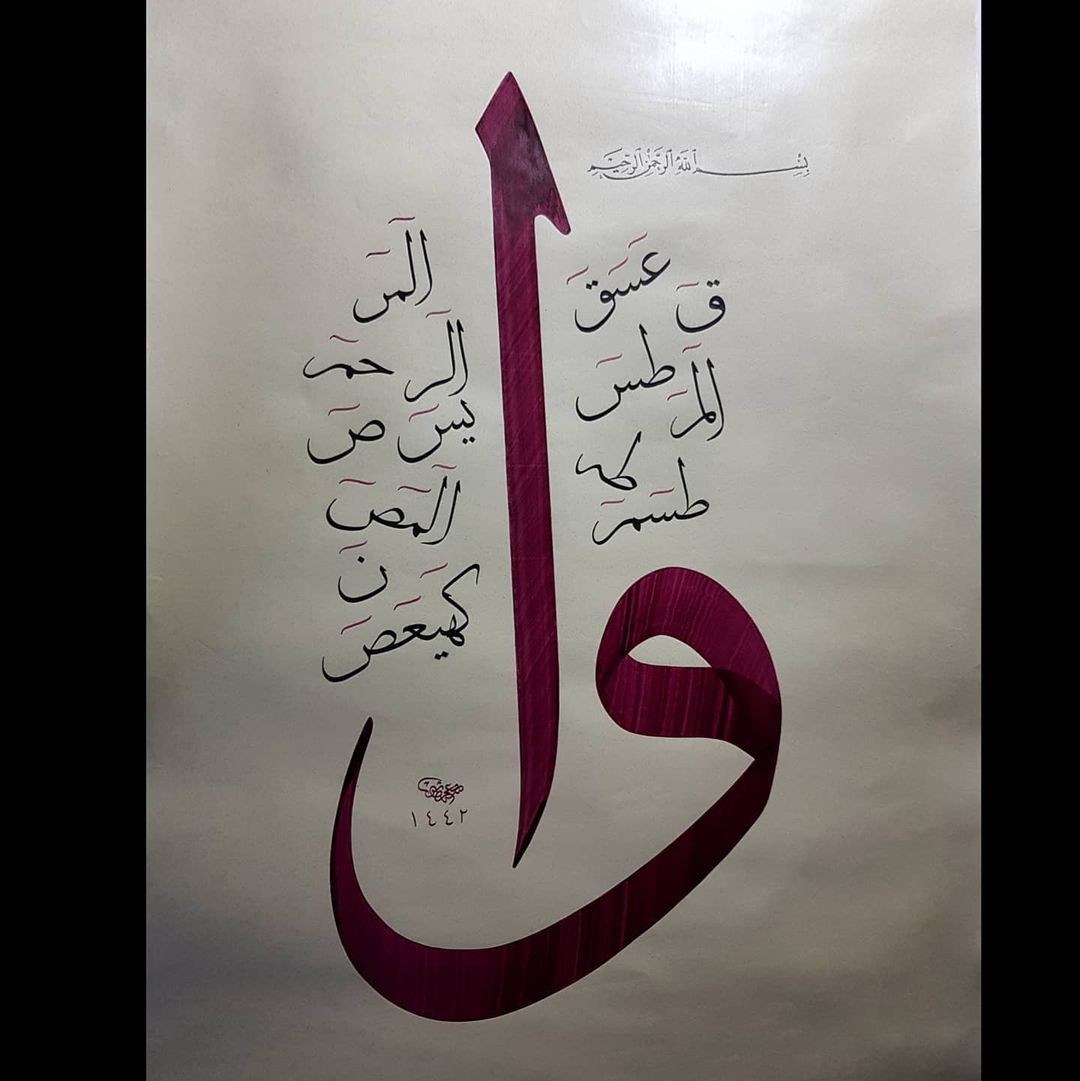 بِسْمِ ٱللَّهِ ٱلرَّحْمَٰنِ ٱلرَّحِيمِ
وا
عٓسٓقٓ
قٓ
طسٓ
الٓمٓر
طه
طسٓمٓ
الٓمٓ
الٓر
حمٓ
يسٓ صٓ
الٓمٓصٓ
نٓ
كٓهيعٓصٓ
١٤٤٢